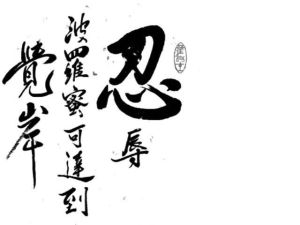 忍辱
波四維蜜可達到
覺岸